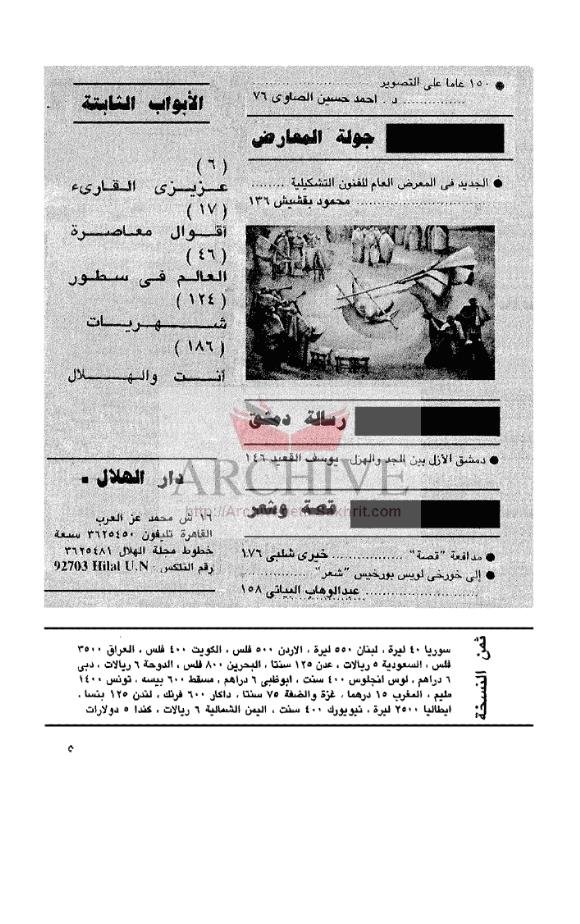 ● ١٥٠ عاما على التصوير ....................
.............. د . احمد حسين الصاوى ٧٦
جولة المعارض
● الجديد فى المعرض العام للفنون التشكيلية ........
........................ محمود بقشيش ١٣٦
رسالة دمشق
● دمشق الأزل بين الجد والهزل - يوسف القعيد ١٤٦
قصة وشعر
● مدافعة "قصة" .................. خيرى شلبى ١٧٦
● إلى خورخى لويس بورخيس "شعر" ..............
.................... عبدالوهاب البياتى ١٥٨
الأبواب الثابتة
( ٦ )
عزيزى القارىء
( ١٧ )
أقوال معاصرة
( ٤٦ )
العالم فى سطور
( ١٢٤ )
شهريات
( ١٨٦ )
أنت والهلال
دار الهلال .
١٦ ش محمد عز العرب
القاهرة تليفون ٣٦٢٥٤٥٠ سبعة
خطوط مجلة الهلال ٣٦٢٥٤٨١
رقم التلكس : 92703 Hilal U.N
ARCHIVE
ثمن النسخة
سوريا ٤٠ ليرة ، لبنان ٥٥٠ ليرة ، الاردن ٥٠٠ فلس ، الكويت ٤٠٠ فلس ، العراق ٣٥٠٠
فلس ، السعودية ٥ ريالات ، عدن ١٢٥ سنتا ، البحرين ٨٠٠ فلس ، الدوحة ٦ ريالات ، دبى
٦ دراهم ، لوس انجلوس ٤٠٠ سنت ، ابوظبى ٦ دراهم ، مسقط ٦٠٠ بيسه ، تونس ١٤٠٠
مليم ، المغرب ١٥ درهما ، غزة والضفة ٧٥ سنتا ، داكار ٦٠٠ فرنك ، لندن ١٢٥ بنسا ،
ايطاليا ٢٥٠٠ ليرة ، نيويورك ٤٠٠ سنت ، اليمن الشمالية ٦ ريالات ، كندا ٥ دولارات
٥